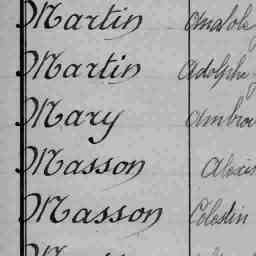 Martin
Martin Adolphe
Mary
Masson Alexis
Masson Célestin